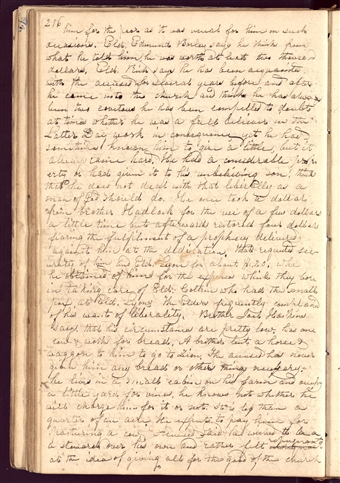 216
him for the poor as it was usual for him on such
occasions. Eld. Edmund Bosley says he thinks from
what he told him he was worth at least two thousand
dollars. Eld. Rich says he has been acquainted
with the accused for several years before and after
he came into the church and thinks he has always
been thus covetous he has been compelled to doubt
at times whether he was a full believer in the
Latter Day work in consequence yet he had
sometimes known him to give a little, but it
always came hard. He held a considerable prop
erty or had given it to his unbelieving son, thinks
that he does not deal with that liberality as a
man of God should do. He one took a dollar
from brother Hadlock for the use of a few dollars
a little time but afterwards restored four dollars
fearing the fulfilment of a prophecy delivered
against him at the dedication, that requites
of him and Eld. Lyons about $20.00, which
he obtained of him for the expense which they bore
in taking care of Eld. Boltin who had the small
pox at Eld. Lyons. The Elders frequently complained
of his want of liberality. Brother Haskins
says that his circumstances are pretty low, has one
cow & works for bread. A brother lent a horse &
waggon to him to go to Zion. The accused has never
given him any bread or other things necessary.
He lives in a small cabin on his farm and occupy
a little yard for vines, he knows not whether he
will charge him for it or not.
quarter of an acre he expects to pay him for
pasturing a cow. Accused said he wished to be a
a steward over his own and rather felt reluctant
at the idea of giving all for the good of the church